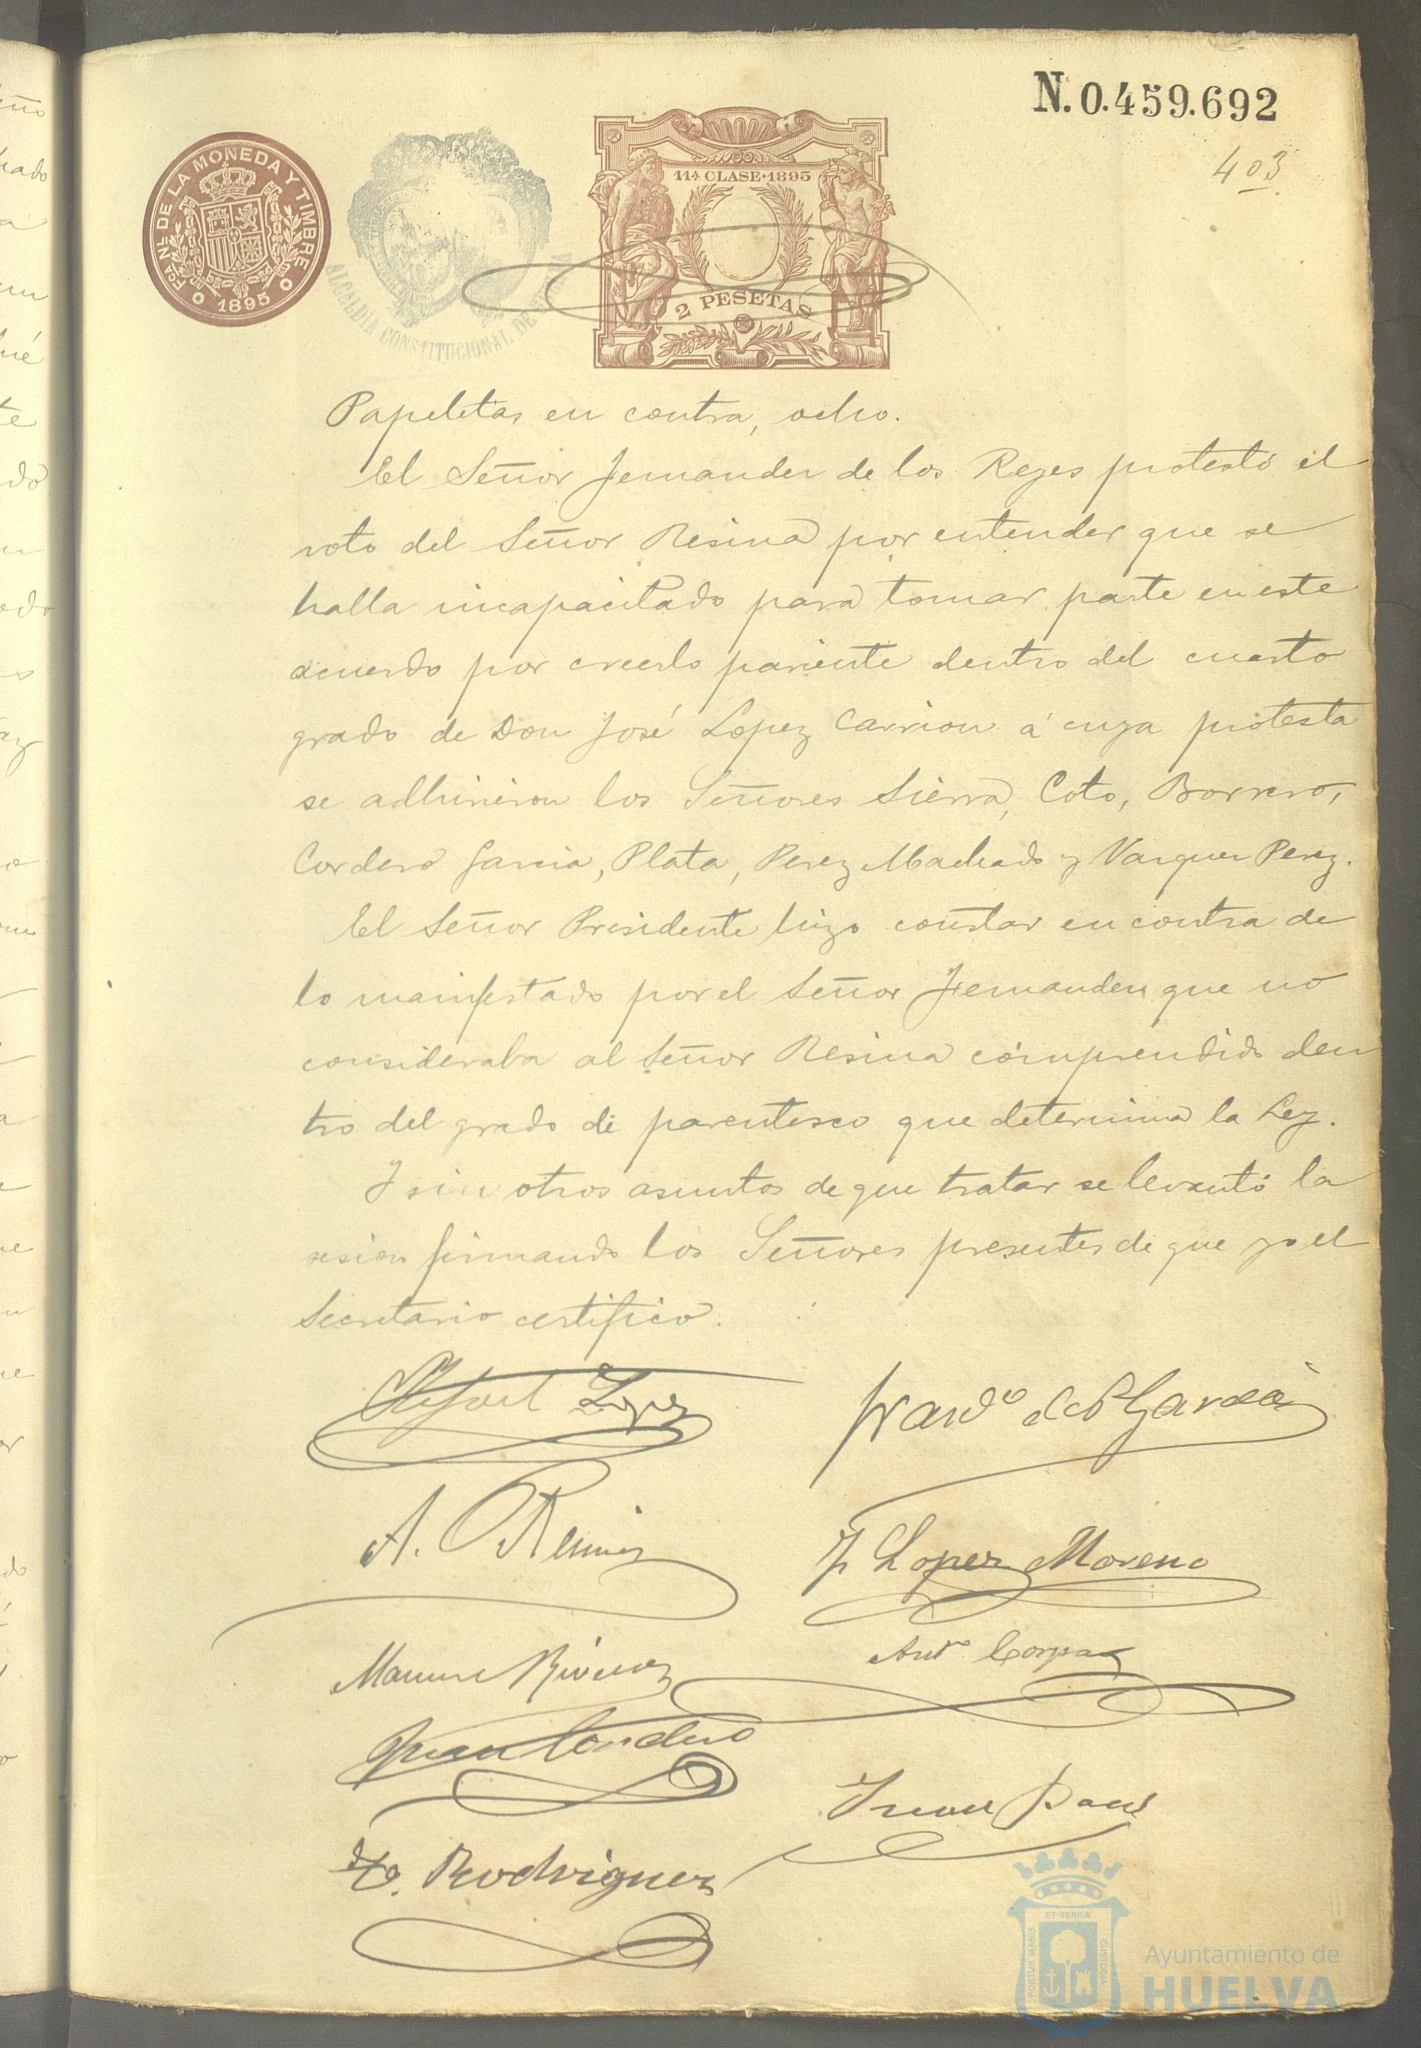 N. 0.459.692
403
FCA. NAL. DE LA MONEDA Y TIMBRE
1895
ALCALDIA CONSTITUCIONAL DE
11ª CLASE·1895
2 PESETAS
Papeletas en contra, ocho.
El Señor Fernandez de los Reyes protestó el
voto del Señor Resina por entender que se
halla incapacitado para tomar parte en este
acuerdo por creerlo pariente dentro del cuarto
grado de Don José Lopez Carrion á cuya protesta
se adhirieron los Señores Sierra, Coto, Borrero,
Cordero Garcia, Plata, Perez Machado y Vazquez Perez.
El Señor Presidente hizo constar en contra de
lo manifestado por el Señor Fernandez que no
consideraba al Señor Resina comprendido den
tro del grado de parentesco que determina la Ley.
Y sin otros asuntos de que tratar se levantó la
sesion firmando los Señores presentes de que yo el
Secretario certifico.
Rafael Lopez
Garcia
A. Resina
F Lopez Moreno
Antº
Juan Cordero
Rodriguez
PORTUS MARIS
ET TERRÆ
CUSTODIA
Ayuntamiento de
HUELVA